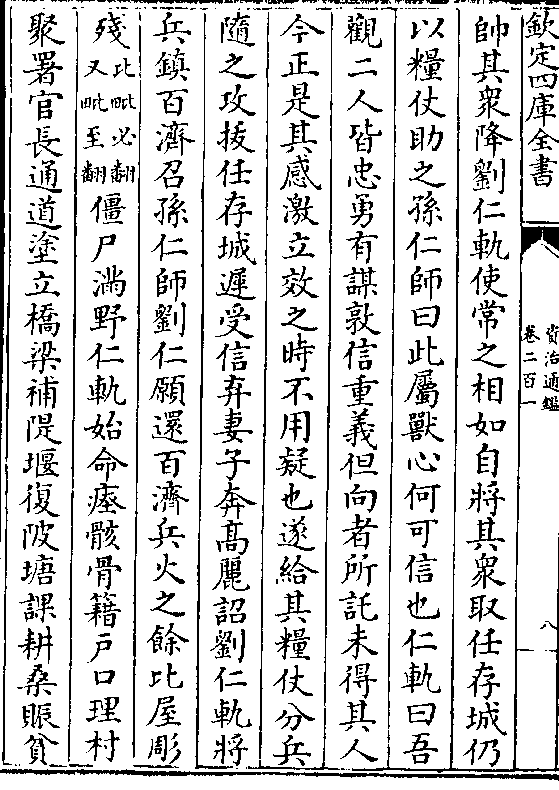 欽定四庫全書
資治通鑑
卷二百一
八
帥其衆降劉仁軌使常之相如自將其衆取任存城仍
以糧仗助之孫仁師曰此屬獸心何可信也仁軌曰吾
觀二人皆忠勇有謀敦信重義但向者所託未得其人
今正是其感激立效之時不用疑也遂給其糧仗分兵
隨之攻拔任存城遲受信弃妻子奔髙麗詔劉仁軌將
兵鎮百濟召孫仁師劉仁願還百濟兵火之餘比屋彫
殘比毗必翻又毗至翻僵尸滿野仁軌始命瘞骸骨籍戸口理村
聚署官長通道塗立橋梁補隄堰復陂塘課耕桑賑貧